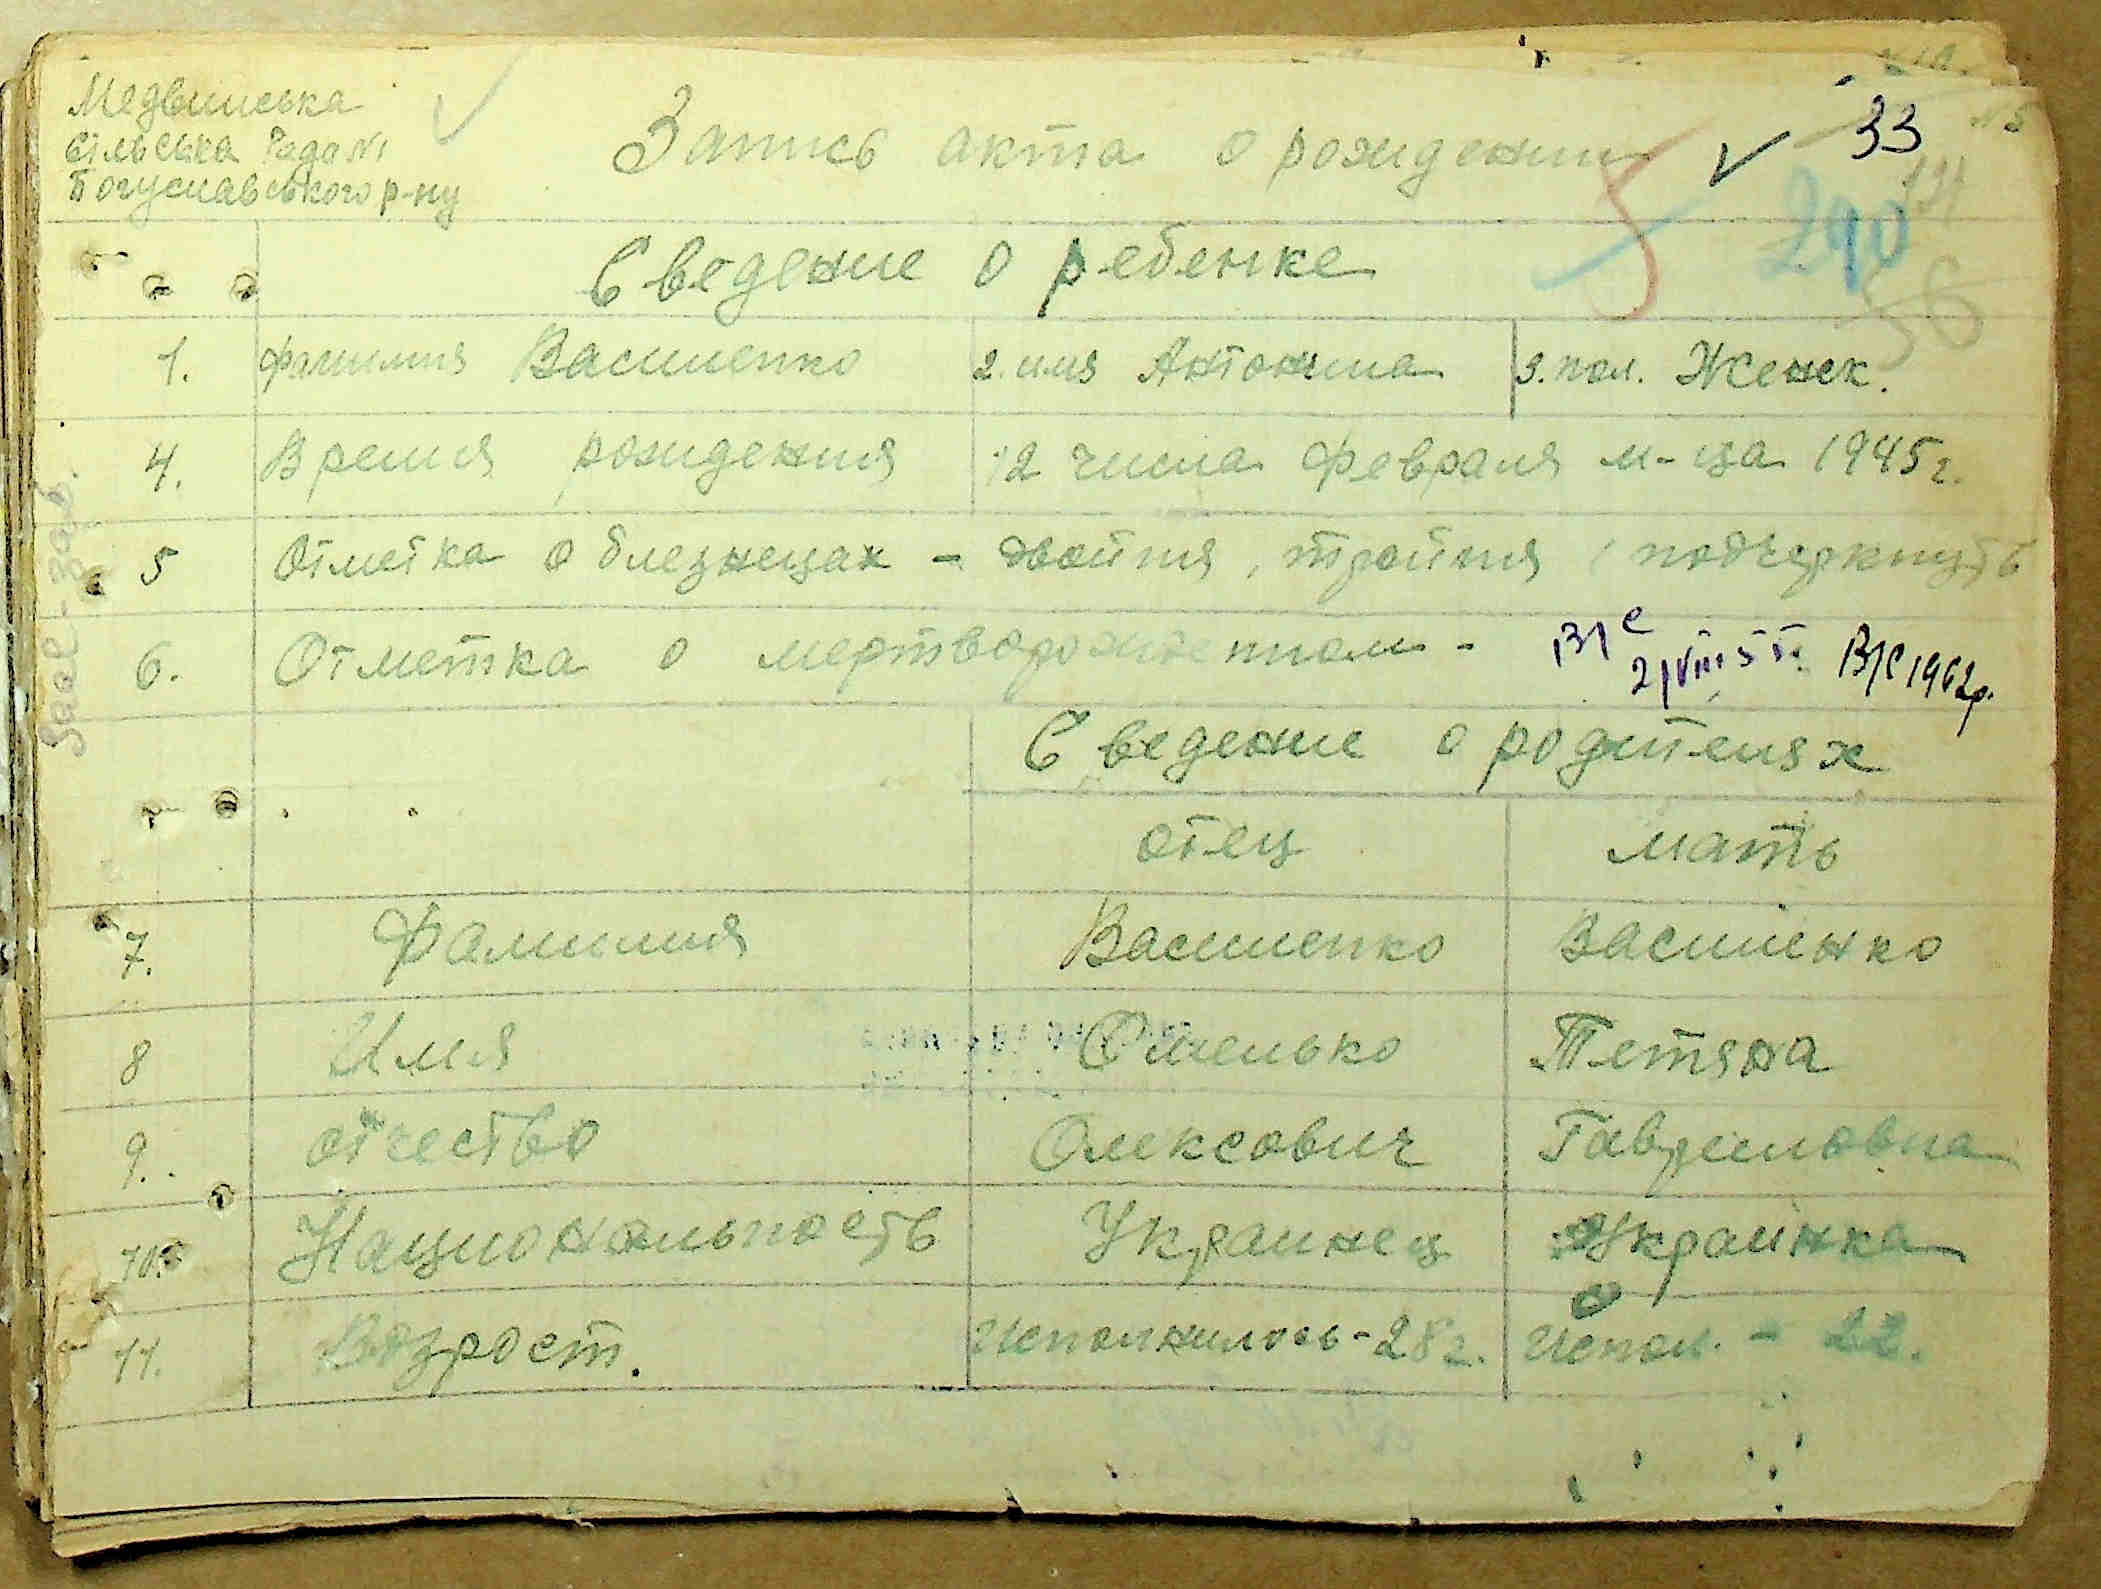 Медвинська
сільська Рада №1
Богуславського р-ну
Запись акта о рождении
33
№5
5
290
36
Сведение о ребенке
1. фамилия Василенко 2. имя Антонина 3. пол. Женск.
4. Время рождения 12 числа февраля м-ца 1945 г.
5 Отметка о близнецах - двойня, тройня / подчеркнуть
6. Отметка о мертворожденном -
В/с 1962р.
Сведение о родителях
отец мать
7. Фамилия Василенко Василенко
8 Имя Омелько Тетяна
9. отчество Олексович Гавриловна
10. Национальность Украинец Украинка
11. Возрост. Исполнилось - 28 г. Испол. - 22.